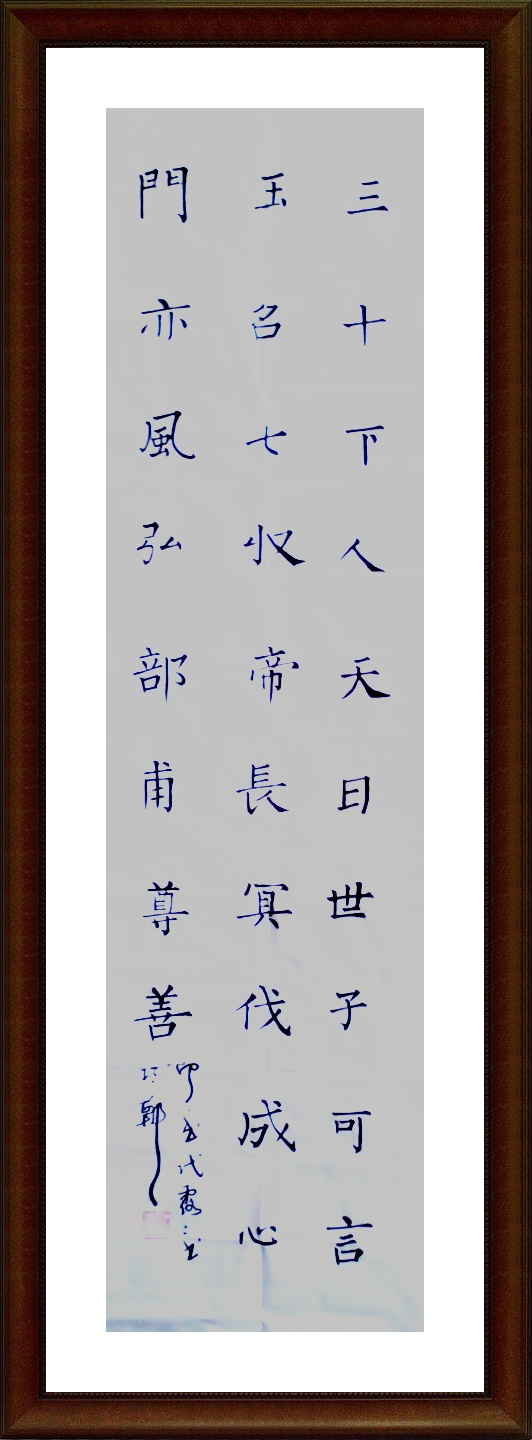 三十下人天日世子可言
王召七收帝長冥伐成心
門亦風弘部甫尊善